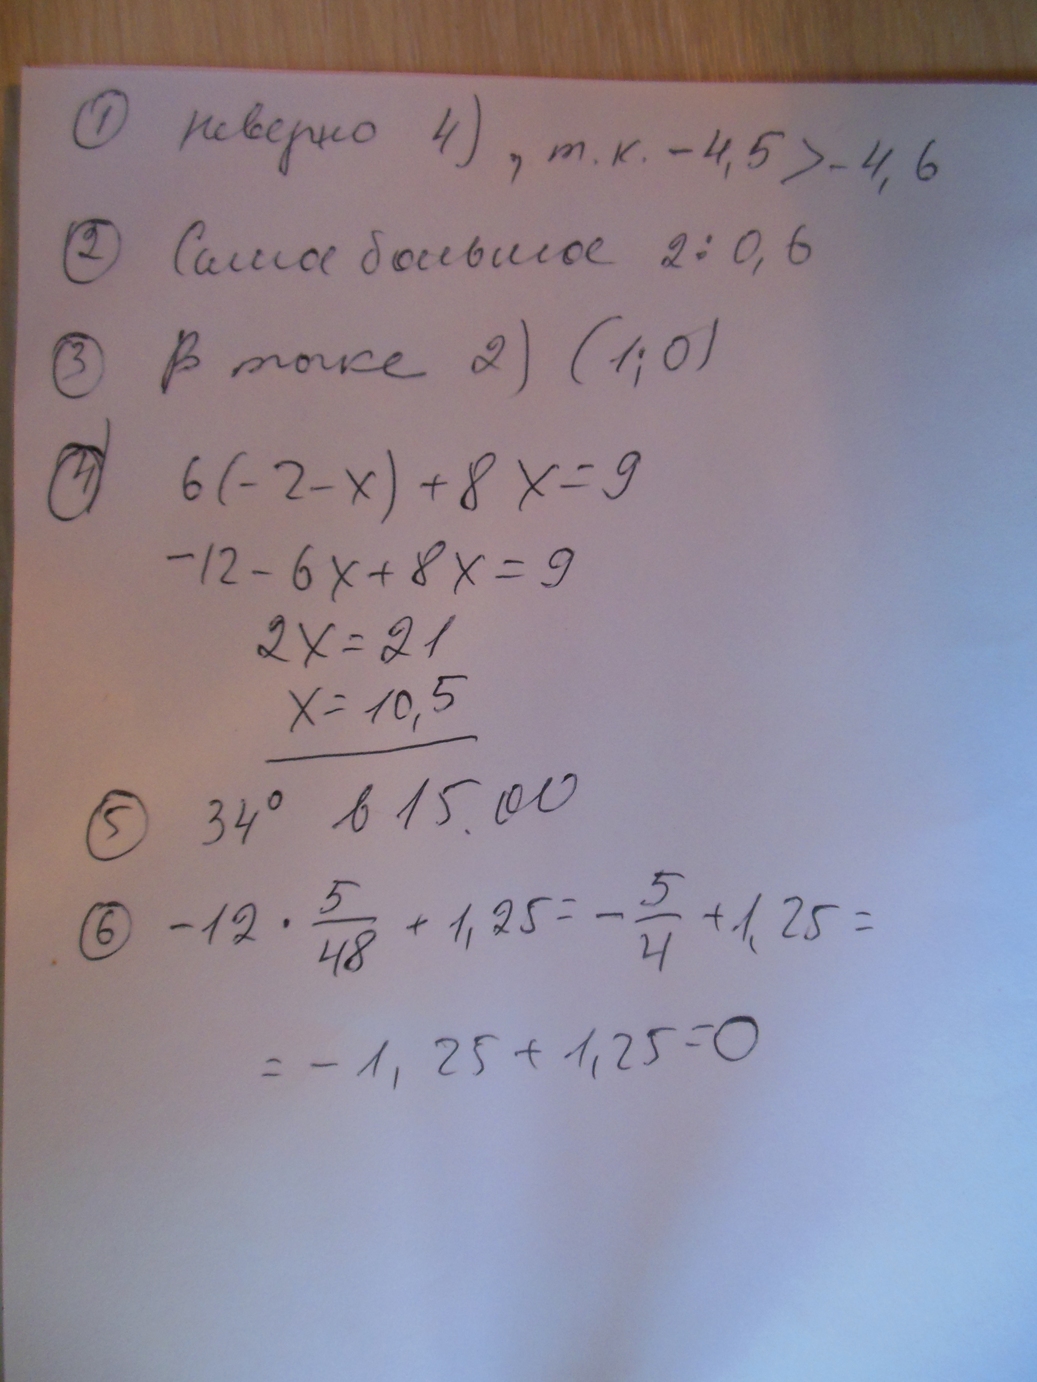 ① неверно 4), т.к. -4,5>-4,6
② Самое большое 2:0,6
③ В точке 2) (1;0)
④ 6(-2-x)+8x=9
-12-6x+8x=9
2x=21
x=10,5
⑤ 34° в 15.00
⑥ -12·5/48+1,25=-5/4+1,25=
=-1,25+1,25=0